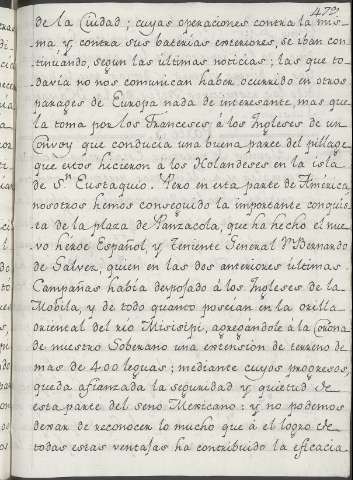 479
de la Ciudad; cuyas operaciones contra la mis-
ma y contra sus baterías exteriores, se iban con-
tinuando, segun las últimas noticias; las que to-
davia no nos comunican haber ocurrido en otros
parages de Europa nada de interesante, mas que
la toma por los Franceses á los Ingleses de un
Convoy que conducia una buena parte del pillage
que estos hicieron á los Holandeses en la isla
de Sn Eustaquio. Pero en esta parte de América
nosotros hemos conseguido la importante conquis-
ta de la plaza de Panzacola, que ha hecho el nue-
vo héroe Español, y Teniente General Dn Bernardo
de Galvez, quien en las dos anteriores últimas
Campañas habia despojado á los Ingleses de la
Mobila, y de todo quanto poseían en la orilla
oriental del rio Misisipi, agregandole a la Corona
de nuestro Soberano una extensión de terreno de
mas de 400 leguas; mediante cuyos progresos,
queda afianzada la seguridad y quietud de
esta parte del seno Mexicano: y no podemos
dexar de reconocer lo mucho que á el logro de
todas estas ventajas ha contribuido la eficacia